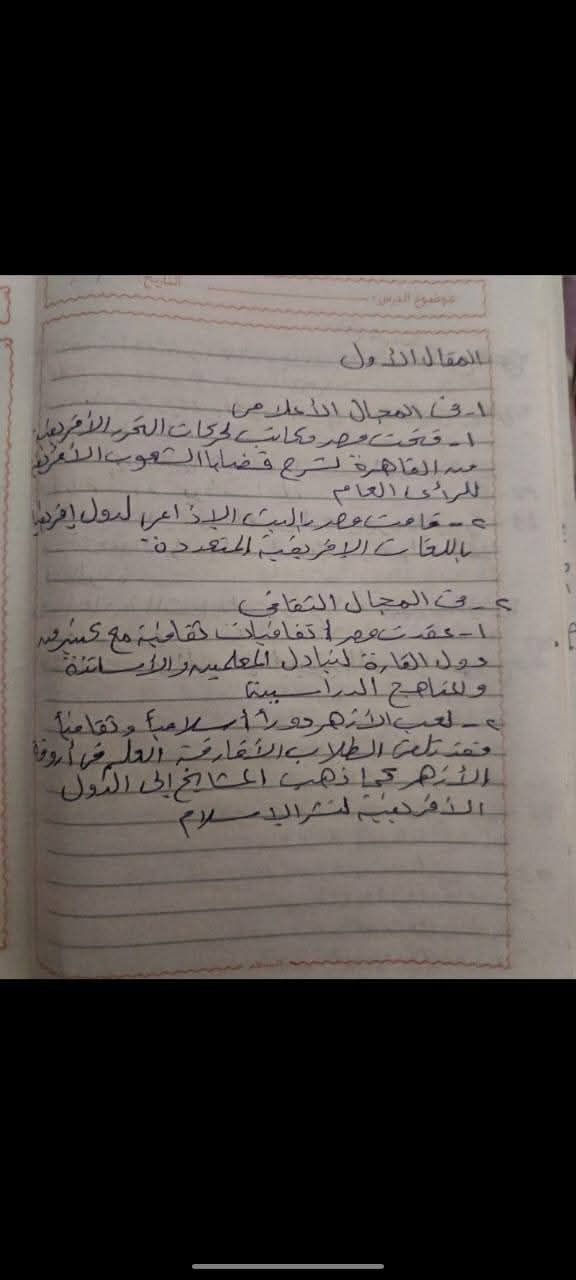 التاريخ
موضوع الدرس:
المقال الأول
١- فى المجال الأعلامى
١- فتحت مصر مكاتب لحركات التحرر الأفريقية
من القاهرة لشرح قضايا الشعوب الأفريقية
للرأى العام
٢- قامت مصر بالبث الإذاعى لدول إفريقيا
باللغات الإفريقية المتعددة.
٢- فى المجال الثقافى
١- عقدت مصر اتفاقيات ثقافية مع كثير من
دول القارة لتبادل المعلمين والأساتذة
والمناهج الدراسية
٢- لعب الأزهر دوراً أسلامياً وثقافياً
فقد تلقى الطلاب الأفارقة العلم فى أروقة
الأزهر كما ذهب المشايخ إلى الدول
الأفريقية لنشر الإسلام